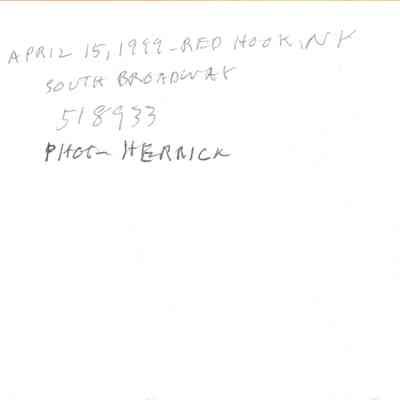 APRIL 15, 1999 - RED HOOK, NY
SOUTH BROADWAY
518933
PHOTO - HERRICK